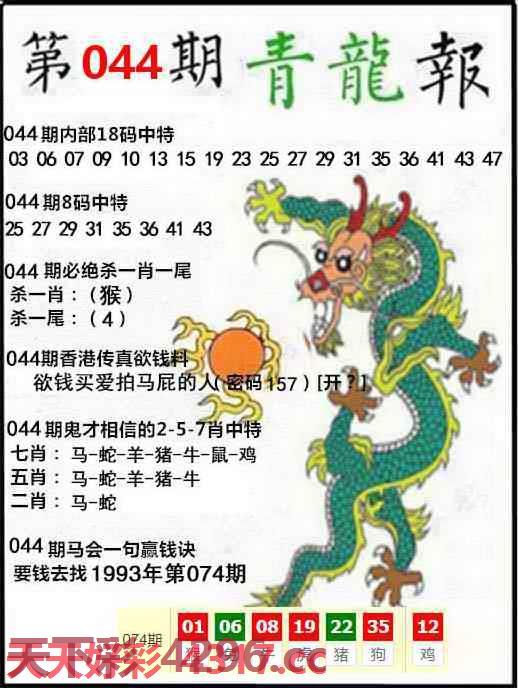 第044期青龍報
044期内部18码中特
03 06 07 09 10 13 15 19 23 25 27 29 31 35 36 41 43 47
044期8码中特
25 27 29 31 35 36 41 43
044 期必绝杀一肖一尾
杀一肖：（猴）
杀一尾：（4）
044期香港传真欲钱料
欲钱买爱拍马屁的人(密码157)[开？]
044期鬼才相信的2-5-7肖中特
七肖：马-蛇-羊-猪-牛-鼠-鸡
五肖：马-蛇-羊-猪-牛
二肖：马-蛇
044期马会一句赢钱诀
要钱去找1993年第074期
074期 01 06 08 19 22 35 12
猴 兔 牛 虎 猪 狗 鸡
天天好彩4296.cc